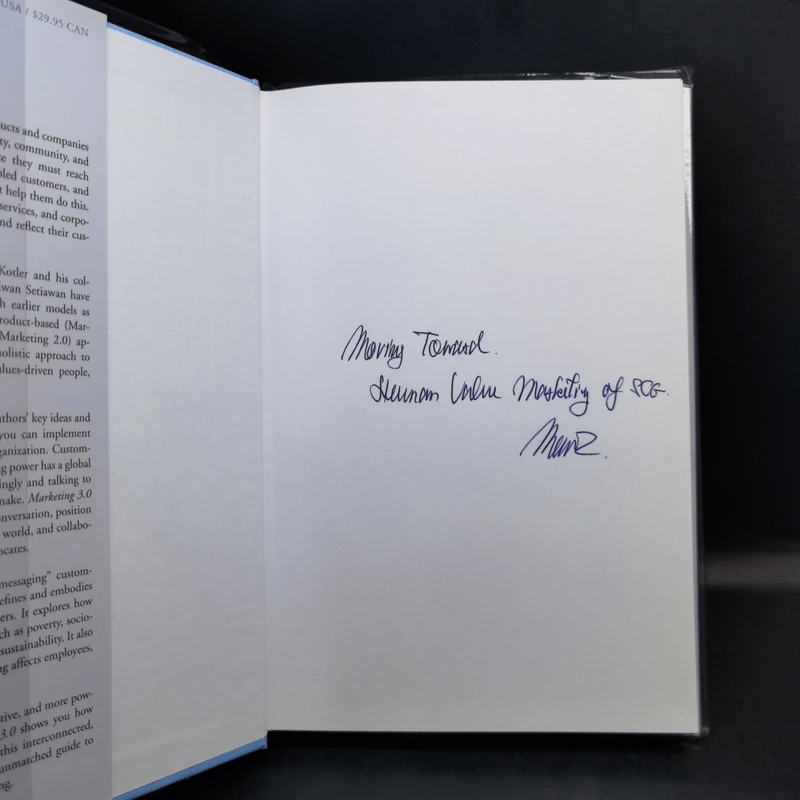 USA / $29.95 CAN
ucts and companies
ty, community, and
e they must reach
oled customers, and
t help them do this.
services, and corpo-
nd reflect their cus-
Kotler and his col-
wan Setiawan have
h earlier models as
roduct-based (Mar-
Marketing 2.0) ap-
holistic approach to
alues-driven people,
uthors' key ideas and
you can implement
ganization. Custom-
g power has a global
ingly and talking to
make. Marketing 3.0
onversation, position
world, and collabo-
ocates.
messaging" custom-
efines and embodies
ers. It explores how
ch as poverty, socio-
sustainability. It also
ng affects employees,
tive, and more pow-
3.0 shows you how
this interconnected,
unmatched guide to
ng.
Moving Toward.
Human Value Marketing of SCG.